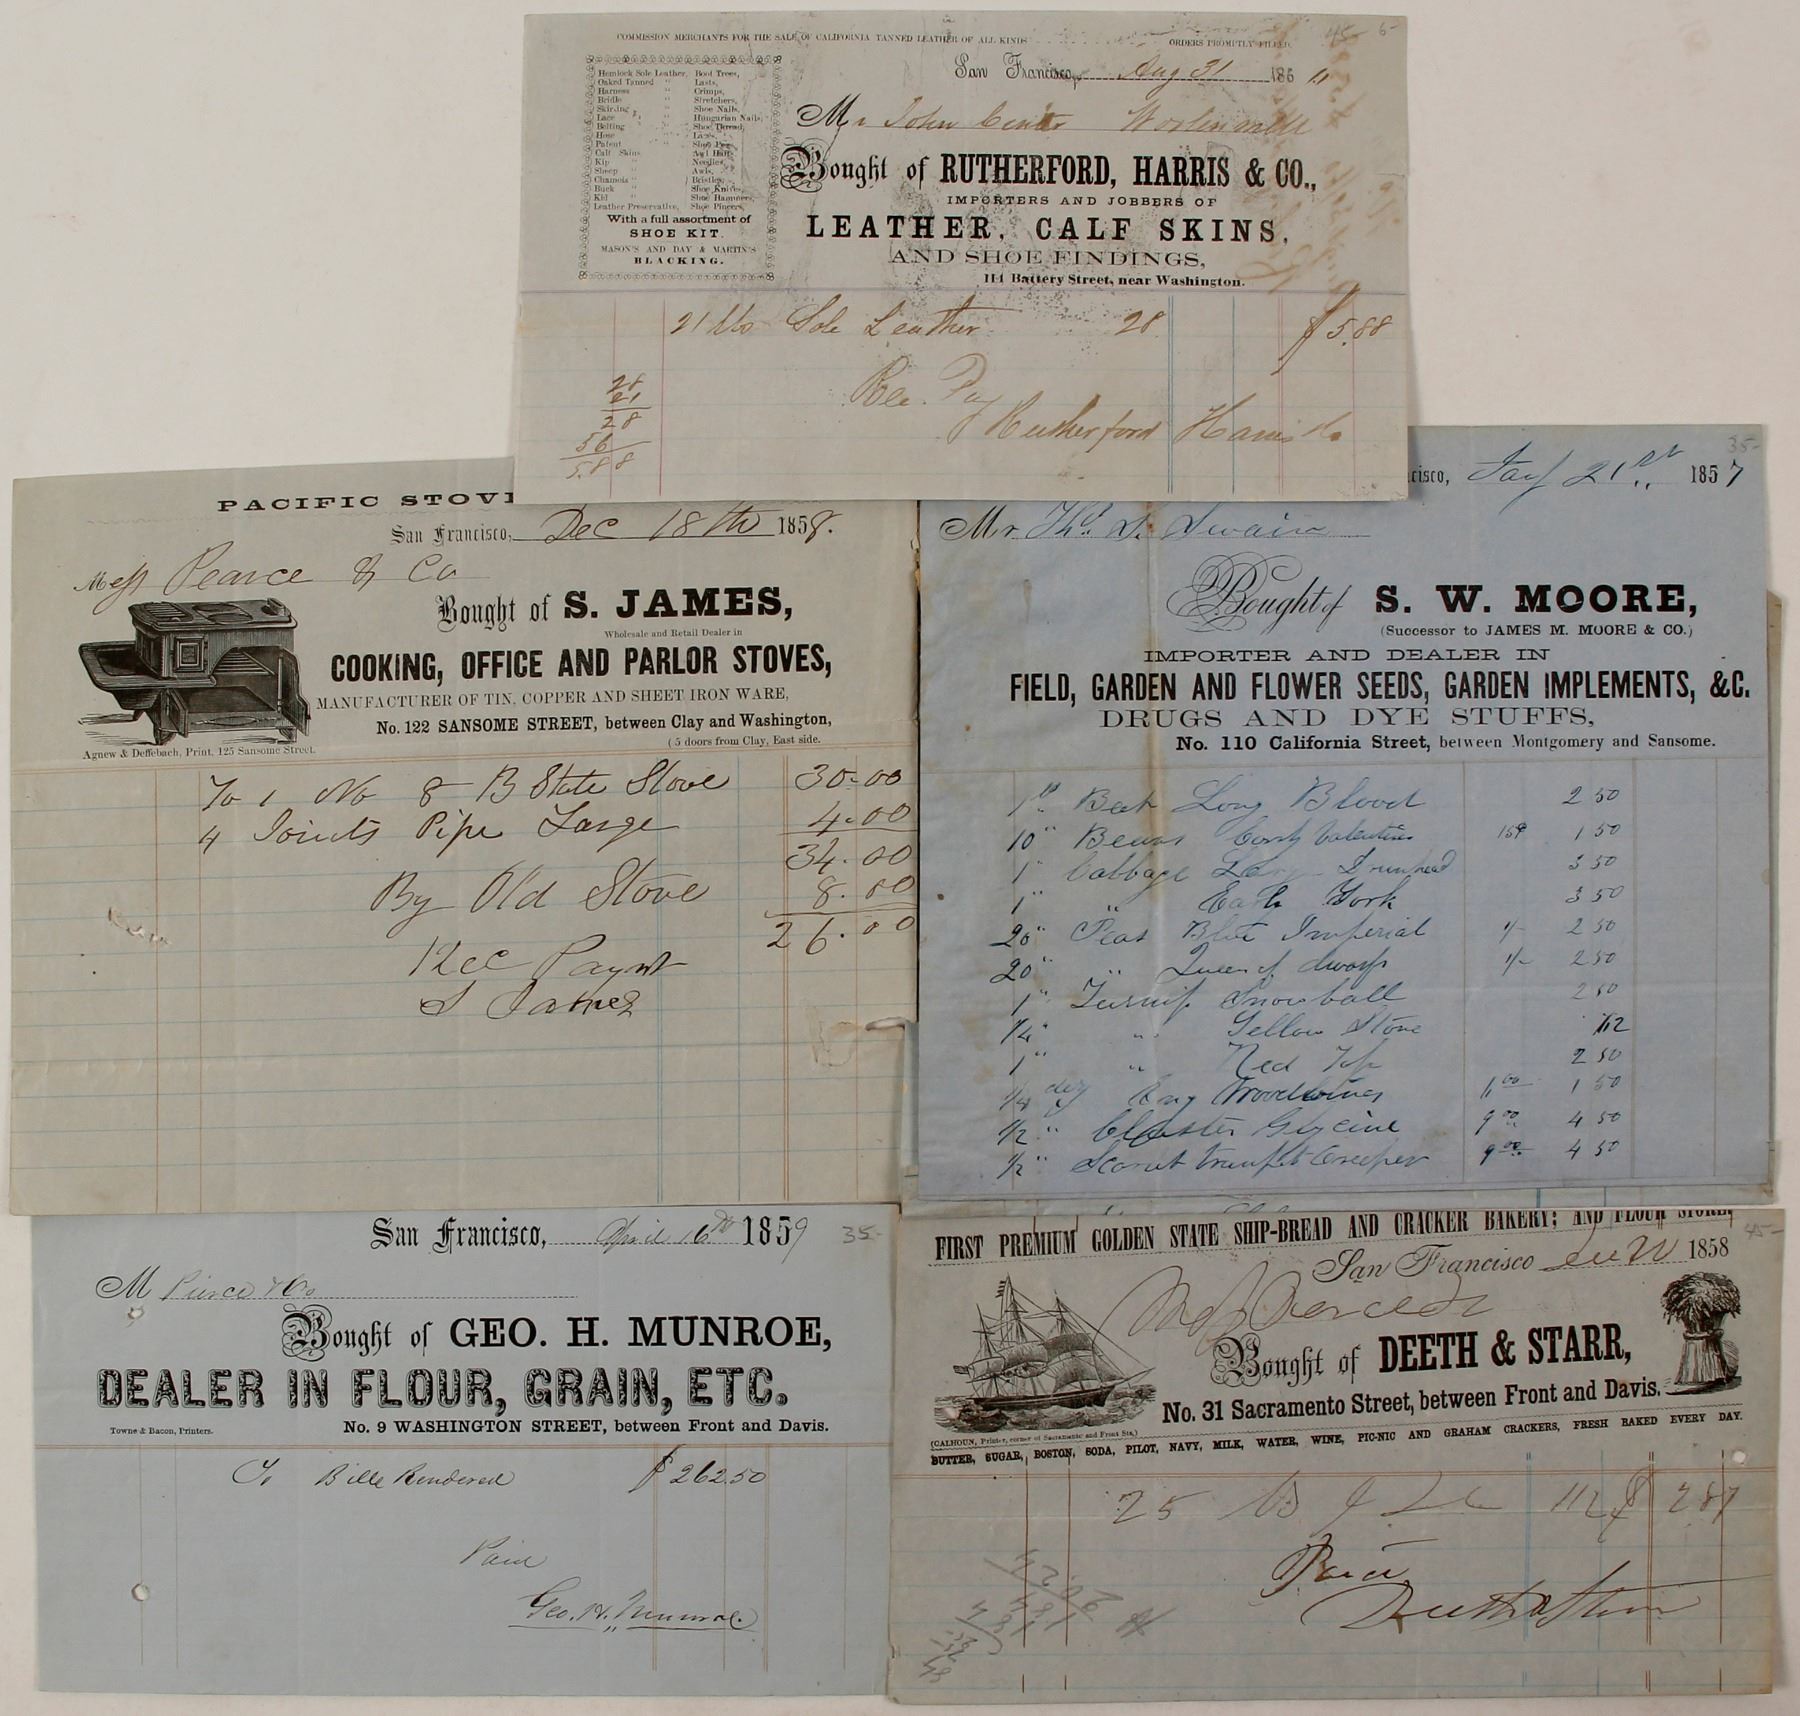 COMMISSION MERCHANTS FOR THE SALE OF CALIFORNIA TANNED LEATHER OF ALL KINDS ORDERS PROMPTLY FILLED.
45- 6-
San Francisco, Aug 31 186
Hemlock Sole Leather, Boot Trees,
Oaked Tanned " Lasts,
Harness " Crimps,
Bridle " Stretchers,
Skirting " Shoe Nails,
Lace " Hungarian Nails,
Belting " Shoe Thread,
Hose " Laces,
Patent " Shoe Pegs,
Calf Skins Awl Hafts,
Kip " Needles,
Sheep " Awls,
Chamois " Bristles,
Buck " Shoe Knives,
Kid " Shoe Hammers,
Leather Preservative, Shoe Pincers,
With a full assortment of
SHOE KIT.
MASON'S AND DAY & MARTIN'S
BLACKING.
Mr John Center
Bought of RUTHERFORD, HARRIS & CO.,
IMPORTERS AND JOBBERS OF
LEATHER, CALF SKINS,
AND SHOE FINDINGS,
111 Battery Street, near Washington.
21 lbs Sole Leather 28 $5.88
28
21
28
56
5.88
Rec. Pay
Rutherford Harris & Co
PACIFIC STOV
San Francisco, Dec 18th 1858.
Mess Pearce & Co
Bought of S. JAMES,
Wholesale and Retail Dealer in
COOKING, OFFICE AND PARLOR STOVES,
MANUFACTURER OF TIN, COPPER AND SHEET IRON WARE,
No. 122 SANSOME STREET, between Clay and Washington,
(5 doors from Clay, East side.
Agnew & Deffebach, Print, 125 Sansome Street.
To 1 No 8 B State Stove 30.00
4 Joints Pipe Large 4.00
34.00
By Old Stove 8.00
26.00
Rec Paymt
S James
35-
cisco, Jany 21st 1857
Mr Thos. S. Swain
Bought of S. W. MOORE,
(Successor to JAMES M. MOORE & CO.)
IMPORTER AND DEALER IN
FIELD, GARDEN AND FLOWER SEEDS, GARDEN IMPLEMENTS, &C.
DRUGS AND DYE STUFFS,
No. 110 California Street, between Montgomery and Sansome.
1lb Beet Long Blood 2 50
10" Beans Early Valentine 15¢ 1 50
1" Cabbage Large Drumhead 3 50
1" " Early York 3 50
20" Peas Blue Imperial 1/- 2 50
20" " Queen of dwarfs 1/- 2 50
1" Turnip Snowball 2 50
1/4" " Yellow Stone
1" " Red Top 2 50
1/4 doz Eng Woodbines 1 50
1/2 " Cluster Glycine 9 00 4 50
1/2 " Scarlet trumpet Creeper 9 00 4 50
San Francisco, April 16th 1859
35-
M Pierce & Co
Bought of GEO. H. MUNROE,
DEALER IN FLOUR, GRAIN, ETC.
Towne & Bacon, Printers.
No. 9 WASHINGTON STREET, between Front and Davis.
To Bills Rendered $262.50
Paid
Geo. H. Munroe
FIRST PREMIUM GOLDEN STATE SHIP-BREAD AND CRACKER BAKERY; AND FLOUR STORE,
45-
San Francisco 1858
Bought of DEETH & STARR,
No. 31 Sacramento Street, between Front and Davis.
(CALHOUN, Printer, corner of Sacramento and Front Sts.)
BUTTER, SUGAR, BOSTON, SODA, PILOT, NAVY, MILK, WATER, WINE, PIC-NIC AND GRAHAM CRACKERS, FRESH BAKED EVERY DAY.
25 lbs 11½ $ 2 87
Paid
Deeth & Starr